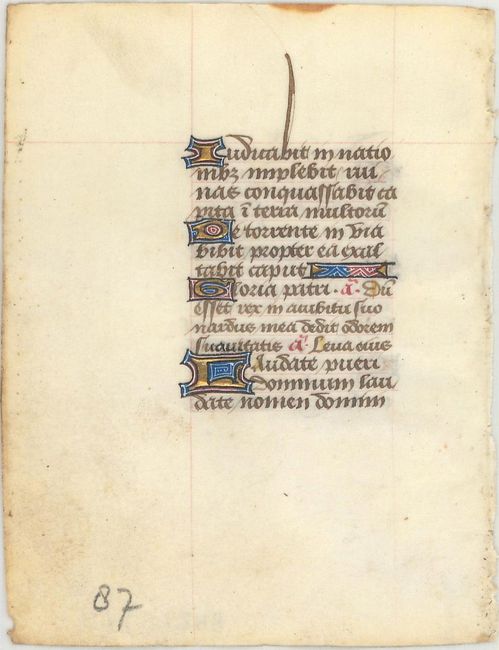 Iudicabit in natio
nibz implebit rui
nas conquassabit ca
pita ī terra multorū
De torrente in via
bibit propter ea exal
tabit caput
Gloria patri. a. Dū
esset rex in accubitu suo
nardus mea dedit odorem
suauitatis a. Leua eius
Laudate pueri
dominum lau
date nomen domini
87